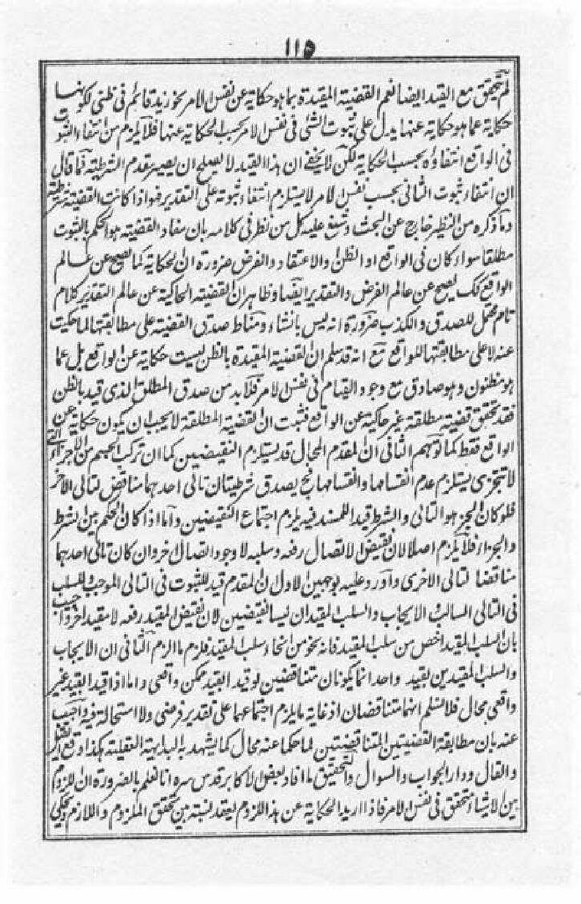 ١١٥
لم يتحقق مع القيد ايضا نعم القضية المقيدة بما هو حكاية عن نفس الامر نحو زيد قائم فى ظنى لكونها
حكاية عما هو حكاية عنها يدل على ثبوت الشئ فى نفس الامر بحسب الحكاية عنها فلا يلزم من انتفاء الثبوت
فى الواقع انتفاؤه بحسب الحكاية لكن لا يخفى ان هذا القيد لا يصلح ان يصير مقدم الشرطية فما قال
ان انتفاء ثبوت التالى بحسب نفس الامر لا يستلزم انتفاء ثبوته على التقدير فهو اذا كانت القضية شرطية
وما ذكره من النظير خارج عن البحث وشنع عليه كل من نظر فى كلامه بان مفاد القضية هو الحكم بالثبوت
مطلقا سواء كان فى الواقع او الظن والاعتقاد والفرض ضرورة ان الحكاية كما تصح عن عالم
الواقع كك يصح عن عالم الفرض والتقدير ايضا وظاهر ان القضية الحاكية عن عالم التقدير كلام
تام محتمل للصدق والكذب ضرورة انه ليس بانشاء ومناط صدق القضية على مطابقتها لما حكيت
عنه لا على مطابقتها للواقع مع انه قد سلم ان القضية المقيدة بالظن ليست حكاية عن الواقع بل عما
هو مظنون وهو صادق مع وجود القيام فى نفس الامر فلا بد من صدق المطلق الذى قيد بالظن
فقد تحقق قضية مطلقة غير حاكية عن الواقع فثبت ان القضية المطلقة لا يجب ان يكون حكاية عن
الواقع فقط كما توهم الثانى ان المقدم المحال قد يستلزم النقيضين كما ان تركب الجسم من الاجزاء التى
لا تتجزى يستلزم عدم انقسامها وانقسامها فح يصدق شرطيتان تالى احدهما مناقض لتالى الاخر
فلو كان الجزء هو التالى والشرط قيد للمسند فيه يلزم اجتماع النقيضين واما اذا كان الحكم بين الشرط
والجزاء فلا يلزم اصلا لان نقيض الاتصال رفعه وسلبه لا وجود اتصال اخر وان كان تالى احدهما
مناقضا لتالى الاخرى واورد عليه بوجهين الاول ان المقدم قيد للثبوت فى التالى الموجب وللسلب
فى التالى السالب والايجاب والسلب المقيدان ليسا نقيضين لان نقيض المقيد رفعه لا مقيد اخر واجيب
بان السلب المقيد اخص من سلب المقيد فانه نحو من انحاء سلب المقيد فلزم ما الزم الثانى ان الايجاب
والسلب المقيدين بقيد واحد انما يكونان متناقضين لو قيد القيد ممكن واقعى واما اذا قيد القيد غير
واقعى محال فلا نسلم انهما متناقضان اذ غاية ما يلزم اجتماعهما على تقدير فرضى ولا استحالة فيه واجيب
عنه بان مطابقة القضيتين المتناقضتين لما حكيا عنه محال كما يشهد به البداهة العقلية هكذا وقع القيل
والقال ودار الجواب والسوال والتحقيق ما افاد بعض الاكابر قدس سره انا نعلم بالضرورة ان اللزوم
بين الاشياء متحقق فى نفس الامر فاذا اريد الحكاية عن هذا اللزوم يعقد نسبة بين تحقق الملزوم واللازم ويحكى